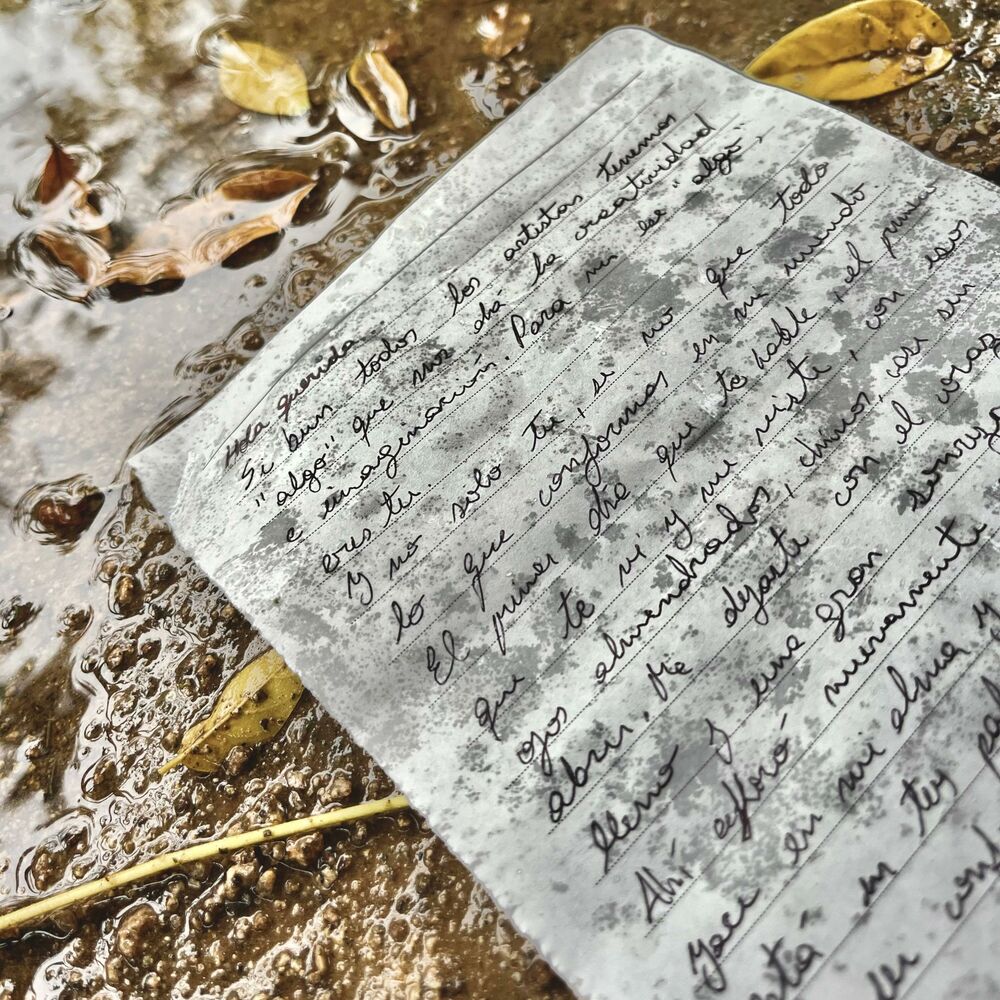 Hola querida
Si bien todos los artistas tenemos
"algo" que nos dá la creatividad
e imaginación. Para mi ese "algo",
eres tu.
Y no solo tú, si no que todo
lo que conformas en mi mundo.
El primer día que te hablé, el primer
que te vi y me viste, con esos
ojos almendrados, chinos, casi sin
abrir. Me dejaste con el coraz
lleno y una gran sonrisa
Ahí afloró nuevamente
yace en mi alma y
está en tus
ser